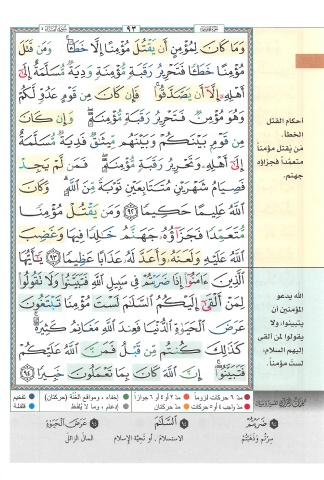 ٩٣
وَمَا كَانَ لِمُؤْمِنٍ أَن يَقْتُلَ مُؤْمِنًا إِلَّا خَطَـًٔا ۚ وَمَن قَتَلَ
مُؤْمِنًا خَطَـًٔا فَتَحْرِيرُ رَقَبَةٍ مُّؤْمِنَةٍ وَدِيَةٌ مُّسَلَّمَةٌ إِلَىٰٓ
أَهْلِهِۦٓ إِلَّآ أَن يَصَّدَّقُوا۟ ۚ فَإِن كَانَ مِن قَوْمٍ عَدُوٍّ لَّكُمْ
وَهُوَ مُؤْمِنٌ فَتَحْرِيرُ رَقَبَةٍ مُّؤْمِنَةٍ ۖ وَإِن كَانَ
مِن قَوْمٍۭ بَيْنَكُمْ وَبَيْنَهُم مِّيثَـٰقٌ فَدِيَةٌ مُّسَلَّمَةٌ
إِلَىٰٓ أَهْلِهِۦ وَتَحْرِيرُ رَقَبَةٍ مُّؤْمِنَةٍ ۖ فَمَن لَّمْ يَجِدْ
فَصِيَامُ شَهْرَيْنِ مُتَتَابِعَيْنِ تَوْبَةً مِّنَ ٱللَّهِ ۗ وَكَانَ
ٱللَّهُ عَلِيمًا حَكِيمًا ٩٢ وَمَن يَقْتُلْ مُؤْمِنًا
مُّتَعَمِّدًا فَجَزَآؤُهُۥ جَهَنَّمُ خَـٰلِدًا فِيهَا وَغَضِبَ
ٱللَّهُ عَلَيْهِ وَلَعَنَهُۥ وَأَعَدَّ لَهُۥ عَذَابًا عَظِيمًا ٩٣ يَـٰٓأَيُّهَا
ٱلَّذِينَ ءَامَنُوٓا۟ إِذَا ضَرَبْتُمْ فِى سَبِيلِ ٱللَّهِ فَتَبَيَّنُوا۟ وَلَا تَقُولُوا۟
لِمَنْ أَلْقَىٰٓ إِلَيْكُمُ ٱلسَّلَـٰمَ لَسْتَ مُؤْمِنًا تَبْتَغُونَ
عَرَضَ ٱلْحَيَوٰةِ ٱلدُّنْيَا فَعِندَ ٱللَّهِ مَغَانِمُ كَثِيرَةٌ ۚ
كَذَٰلِكَ كُنتُم مِّن قَبْلُ فَمَنَّ ٱللَّهُ عَلَيْكُمْ
فَتَبَيَّنُوٓا۟ ۚ إِنَّ ٱللَّهَ كَانَ بِمَا تَعْمَلُونَ خَبِيرًا ٩٤
أحكام القتل
الخطأ.
من يقتل مؤمناً
متعمداً فجزاؤه
جهنم.
الله يدعو
المؤمنين أن
يتبينوا، ولا
يقولوا لمن ألقى
إليهم السلام:
لست مؤمناً.
مدّ ٦ حركات لزوماً مدّ ٢ أو ٤ أو ٦ جوازاً إخفاء، ومواقع الغنّة (حركتان) تفخيم
مدّ واجب ٤ أو ٥ حركات مدّ حركتان إدغام، وما لا يُلفظ قلقلة
٩٤ ضَرَبْتُمْ ٩٤ السَّلَمَ ٩٤ عَرَضَ الْحَيَوٰةِ
سِرْتُم وَذَهَبْتُم الاستسلام، أو تحيّة الإسلام المال الزائل